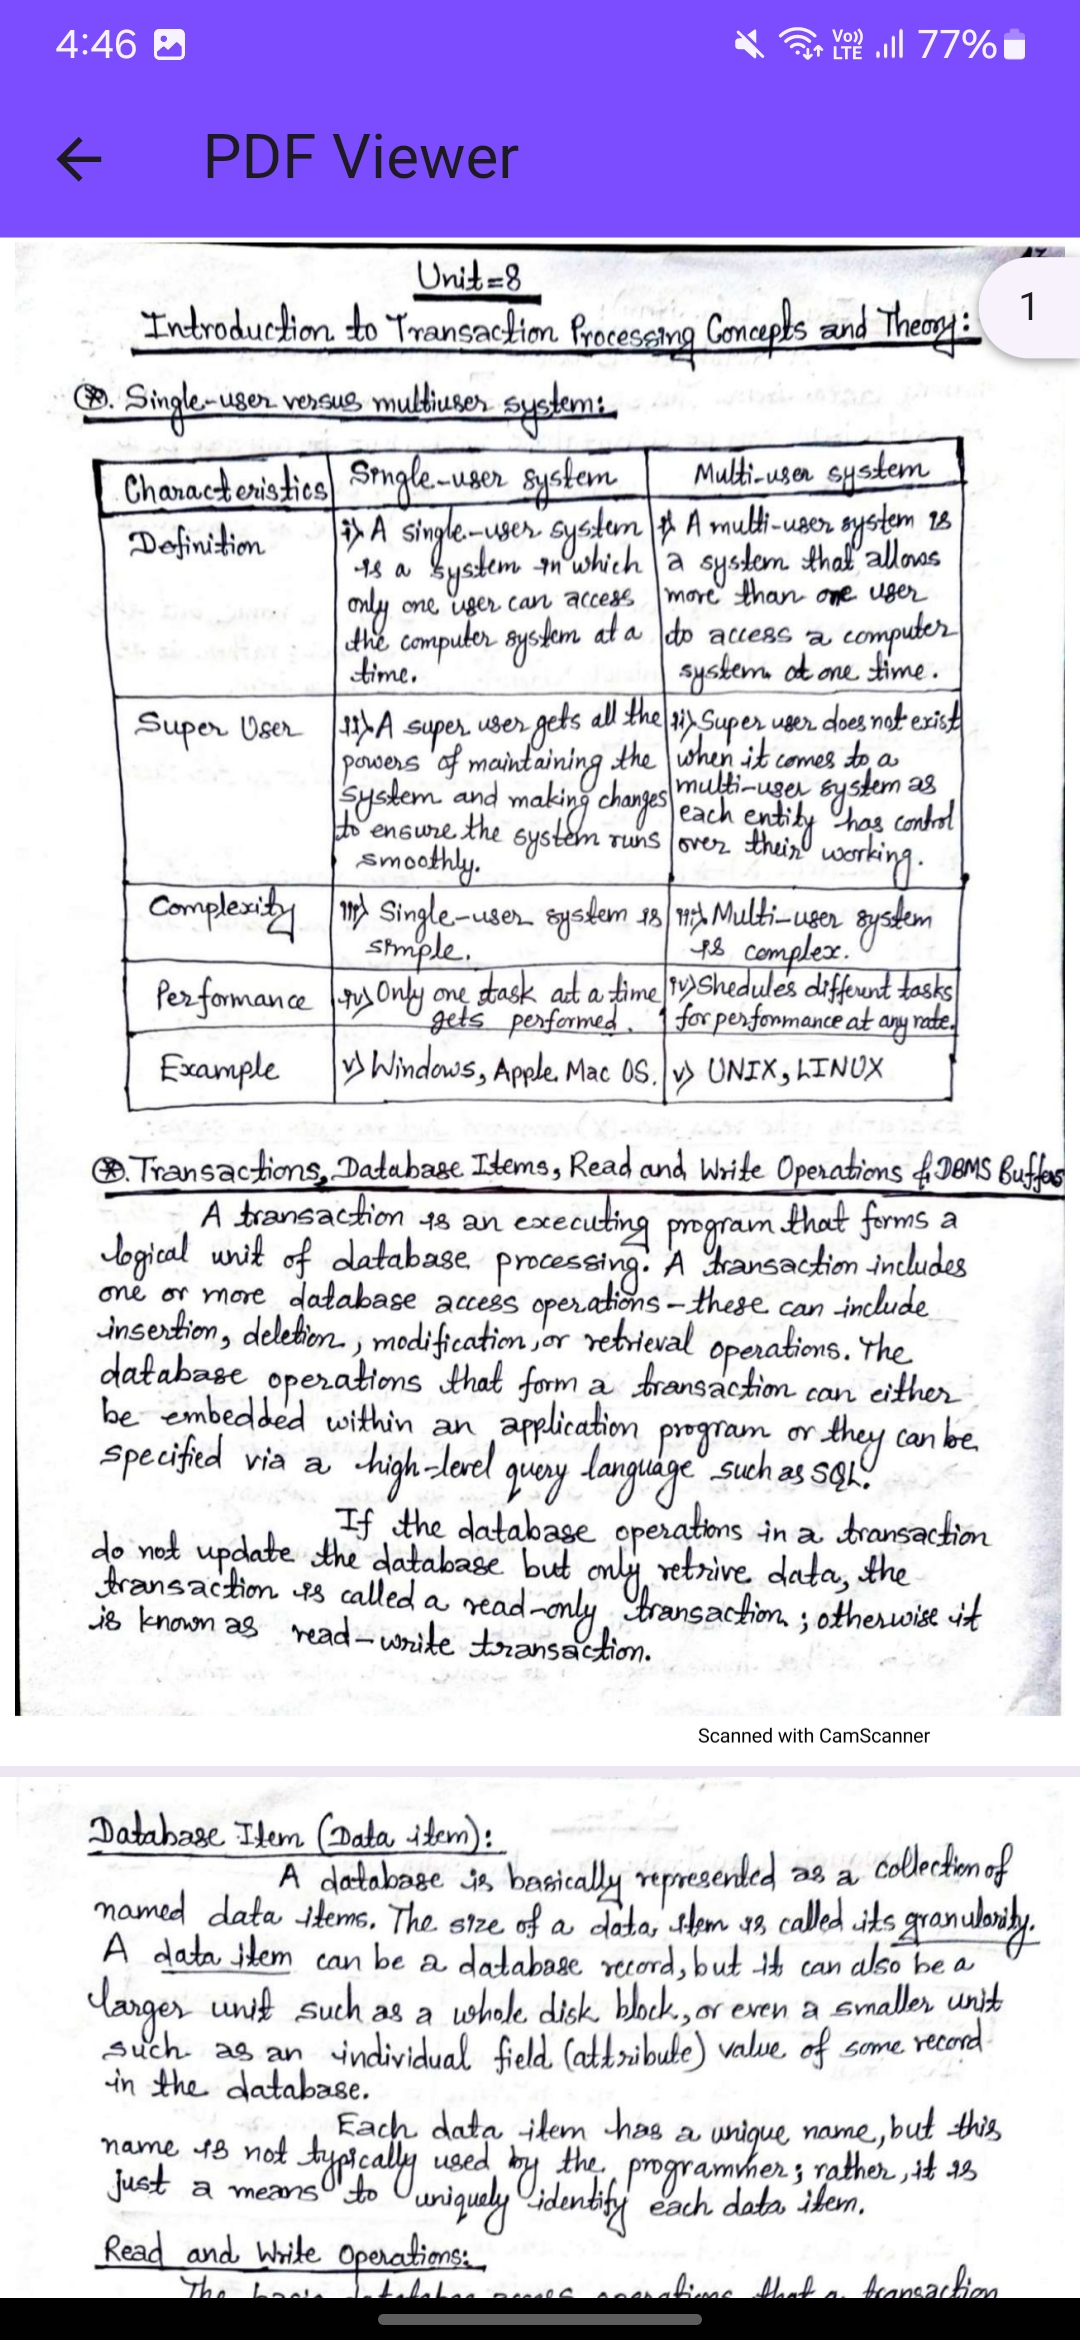 4:46
Vo)) LTE 77%
PDF Viewer
1
Unit=8
Introduction to Transaction Processing Concepts and Theory:
⊛. Single-user versus multiuser system:
Characteristics Single-user system Multi-user system
Definition
i) A single-user system
is a system in which
only one user can access
the computer system at a
time.
i) A multi-user system is
a system that allows
more than one user
to access a computer
system at one time.
Super User
ii) A super user gets all the
powers of maintaining the
system and making changes
to ensure the system runs
smoothly.
ii) Super user does not exist
when it comes to a
multi-user system as
each entity has control
over their working.
Complexity
iii) Single-user system is
simple.
iii) Multi-user system
is complex.
Performance
iv) Only one task at a time
gets performed.
iv) Shedules different tasks
for performance at any rate.
Example
v) Windows, Apple Mac OS.
v) UNIX, LINUX
⊛. Transactions, Database Items, Read and Write Operations & DBMS Buffers
A transaction is an executing program that forms a
logical unit of database processing. A transaction includes
one or more database access operations – these can include
insertion, deletion, modification, or retrieval operations. The
database operations that form a transaction can either
be embedded within an application program or they can be
specified via a high-level query language such as SQL.
If the database operations in a transaction
do not update the database but only retrive data, the
transaction is called a read-only transaction; otherwise it
is known as read-write transaction.
Scanned with CamScanner
Database Item (Data item):
A database is basically represented as a collection of
named data items. The size of a data item is called its granularity.
A data item can be a database record, but it can also be a
larger unit such as a whole disk block, or even a smaller unit
such as an individual field (attribute) value of some record
in the database.
Each data item has a unique name, but this
name is not typically used by the programmer; rather, it is
just a means to uniquely identify each data item.
Read and Write Operations:
The basic database access operations that a transaction